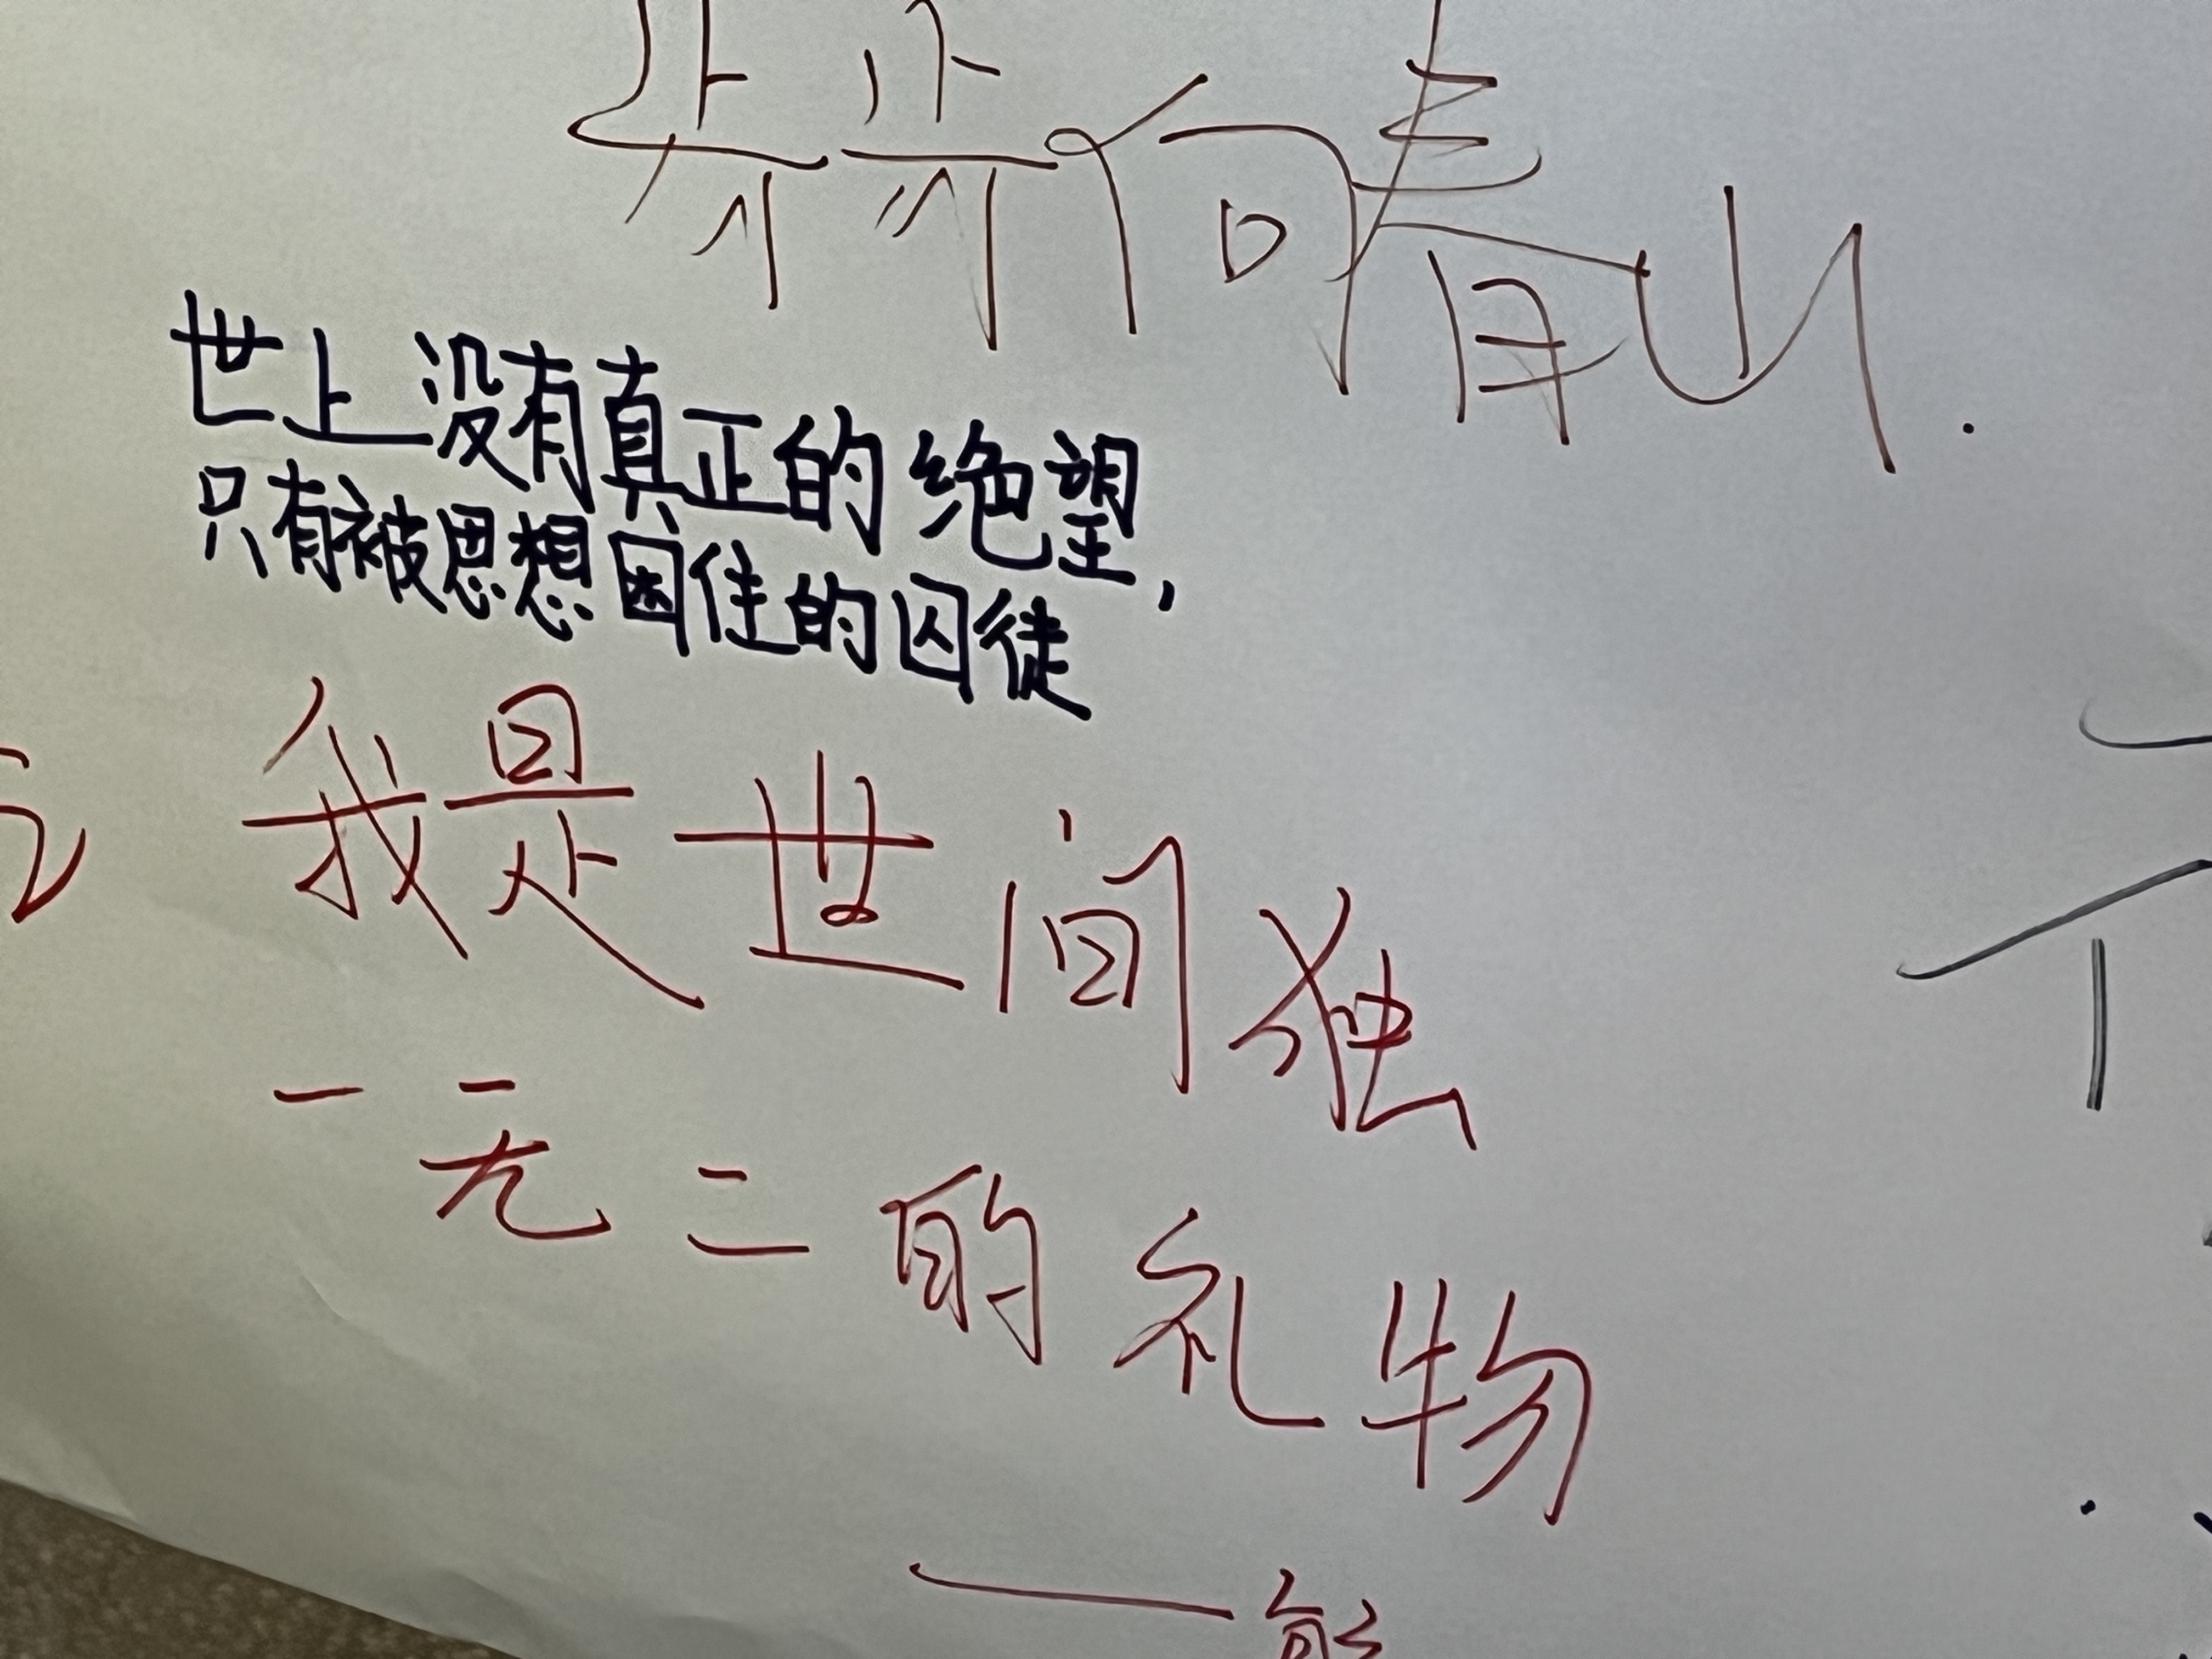 步步向春山.
世上没有真正的绝望,
只有被思想困住的囚徒
我是世间独
一无二的礼物